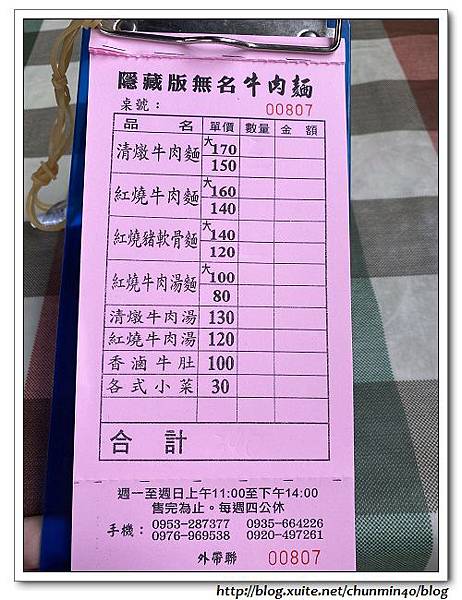 隱藏版無名牛肉麵
桌號： 00807
品 名 單價 數量 金 額
清燉牛肉麵 大170
150
紅燒牛肉麵 大160
140
紅燒豬軟骨麵 大140
120
紅燒牛肉湯麵 大100
80
清燉牛肉湯 130
紅燒牛肉湯 120
香滷牛肚 100
各式小菜 30
合 計
週一至週日上午11:00至下午14:00
售完為止。每週四公休
手機： 0953-287377 0935-664226
0976-969538 0920-497261
外帶聯 00807
http://blog.xuite.net/chunmin40/blog